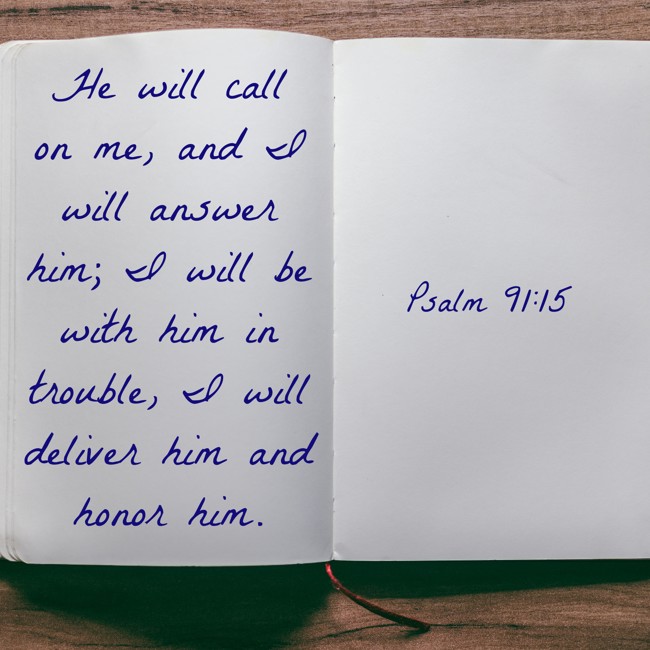 He will call
on me, and I
will answer
him; I will be
with him in
trouble, I will
deliver him and
honor him.
Psalm 91:15